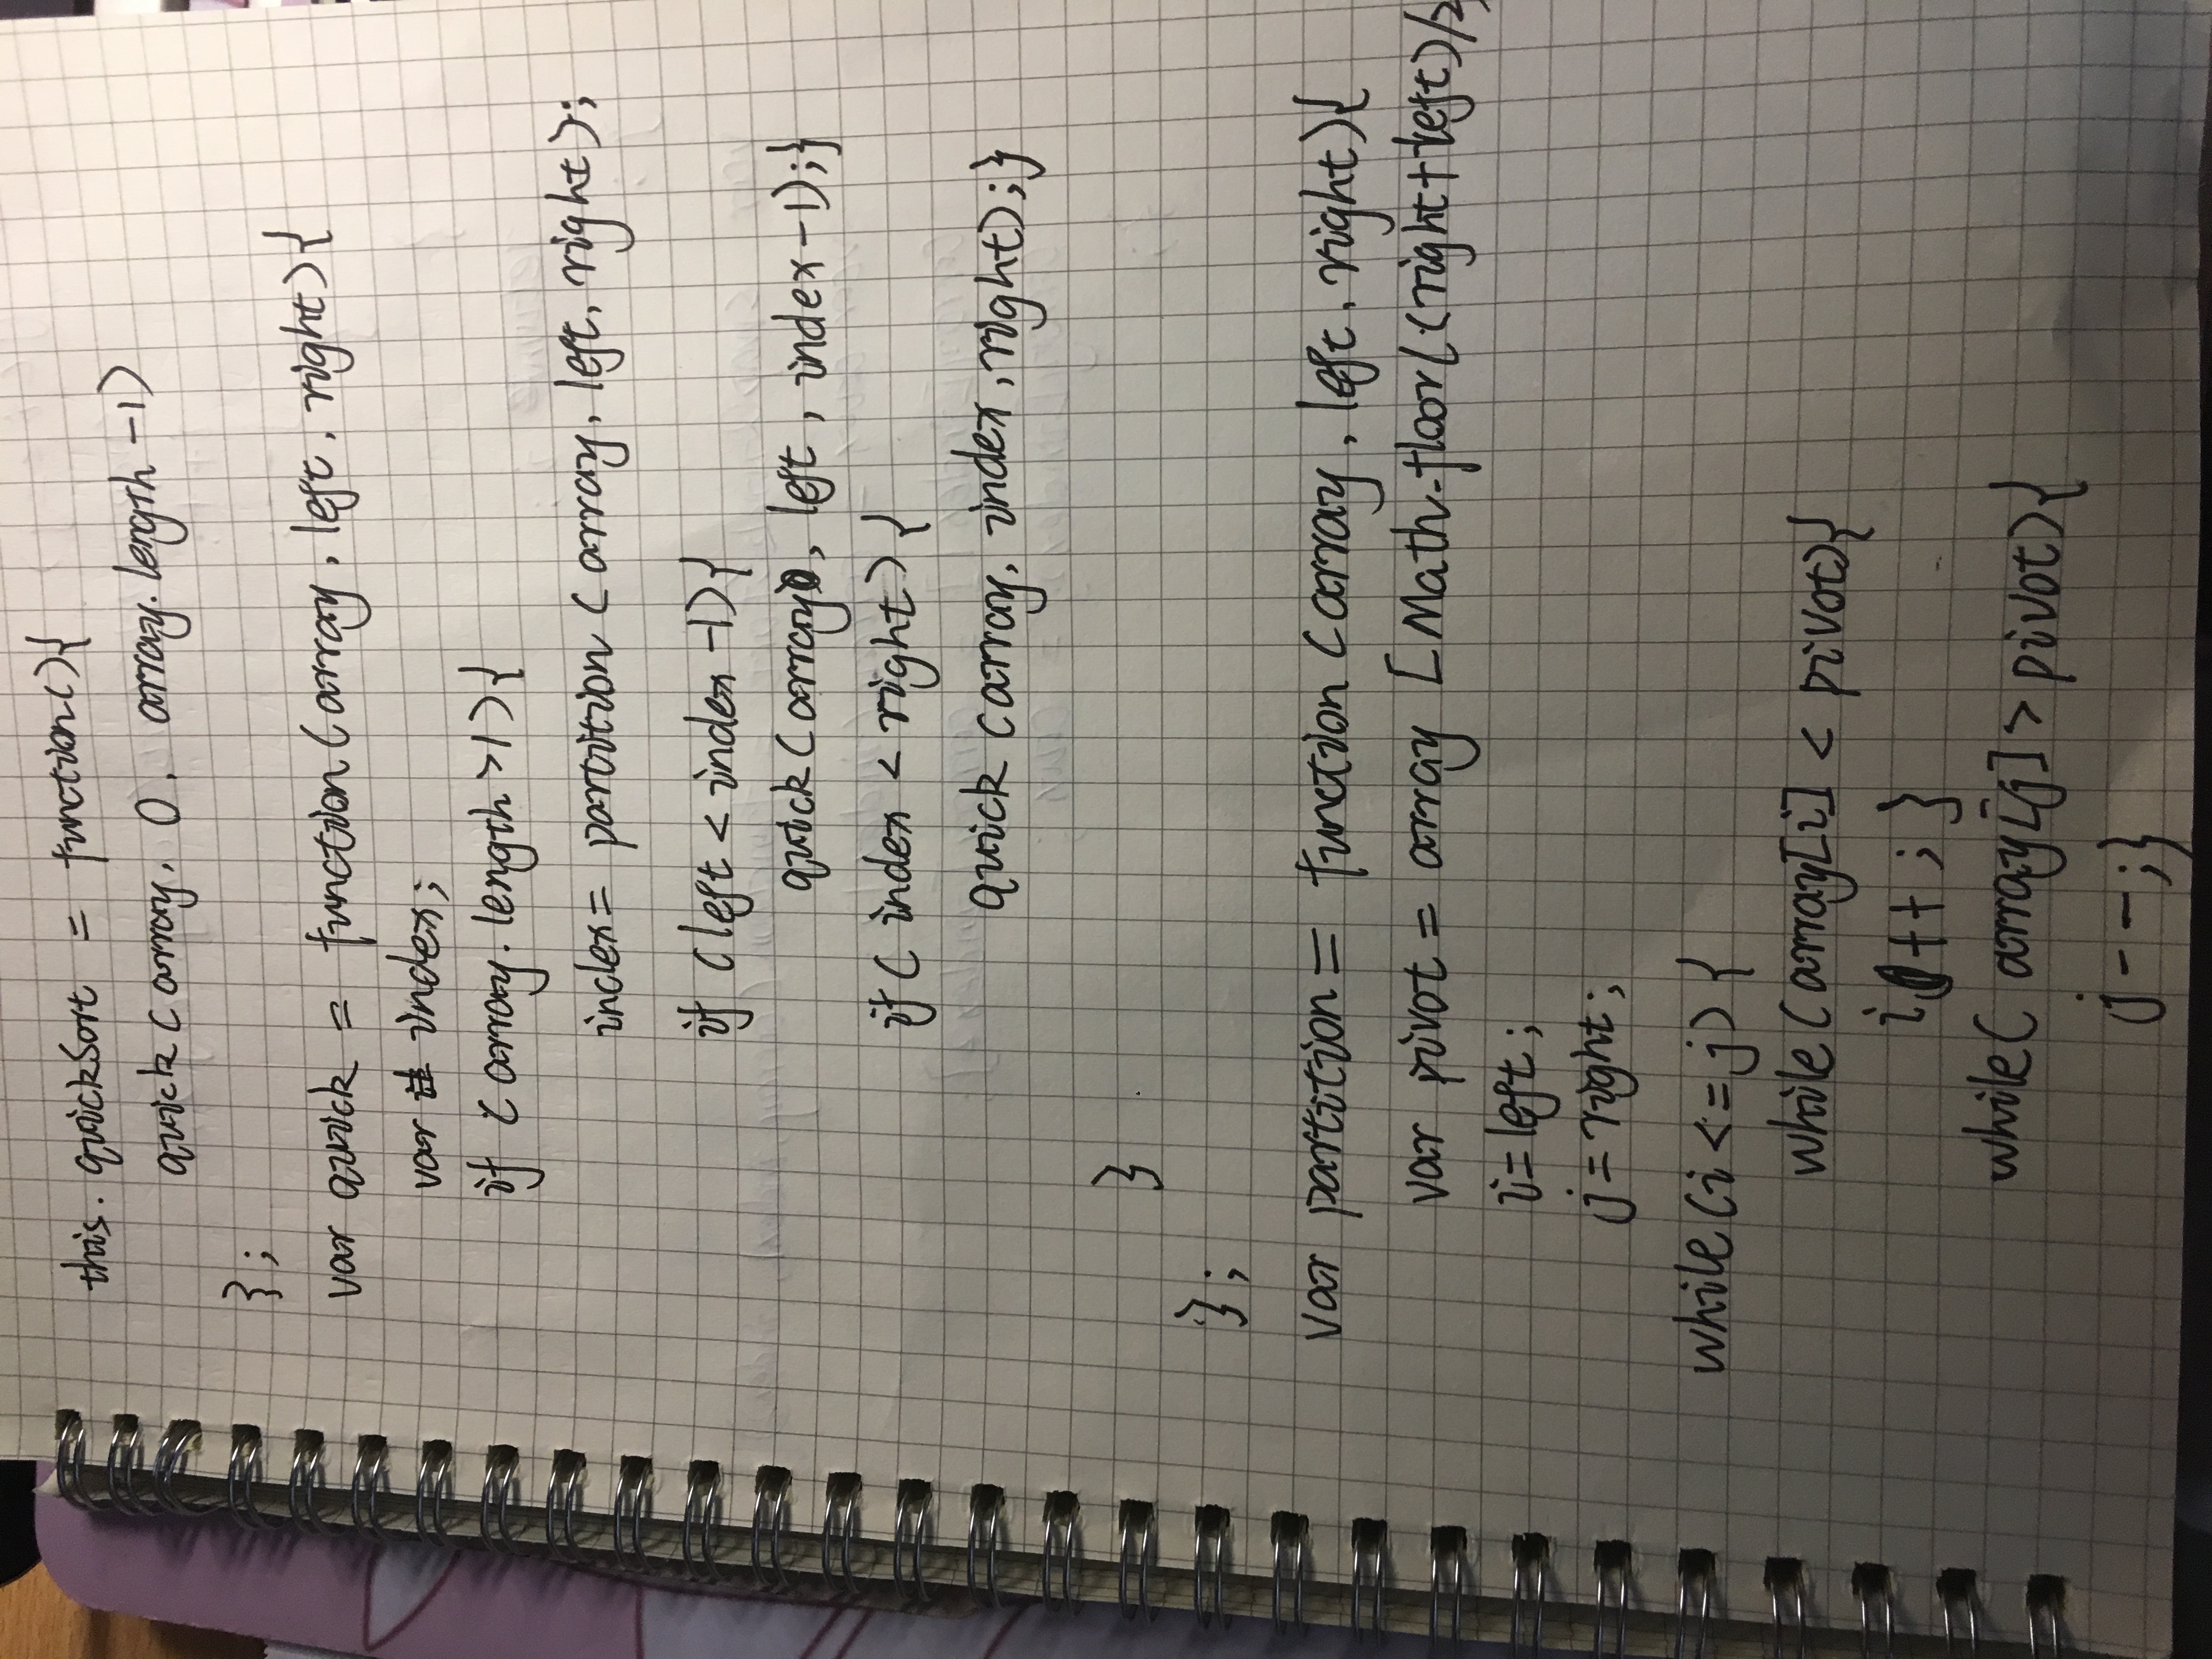 this. quickSort = function(){
quick(array, 0, array.length -1)
};
var quick = function(array, left, right){
var index;
if (array.length>1){
index= partition (array, left, right);
if (left < index -1){
quick(array, left, index-1);}
if( index < right) {
quick (array, index, right);}
}
};
var partition = function (array, left, right){
var pivot = array [Math.floor((right+left)/2
i=left;
j=right;
while(i <= j) {
while(array[i] < pivot){
i++; }
while( array[j] > pivot){
j--;}